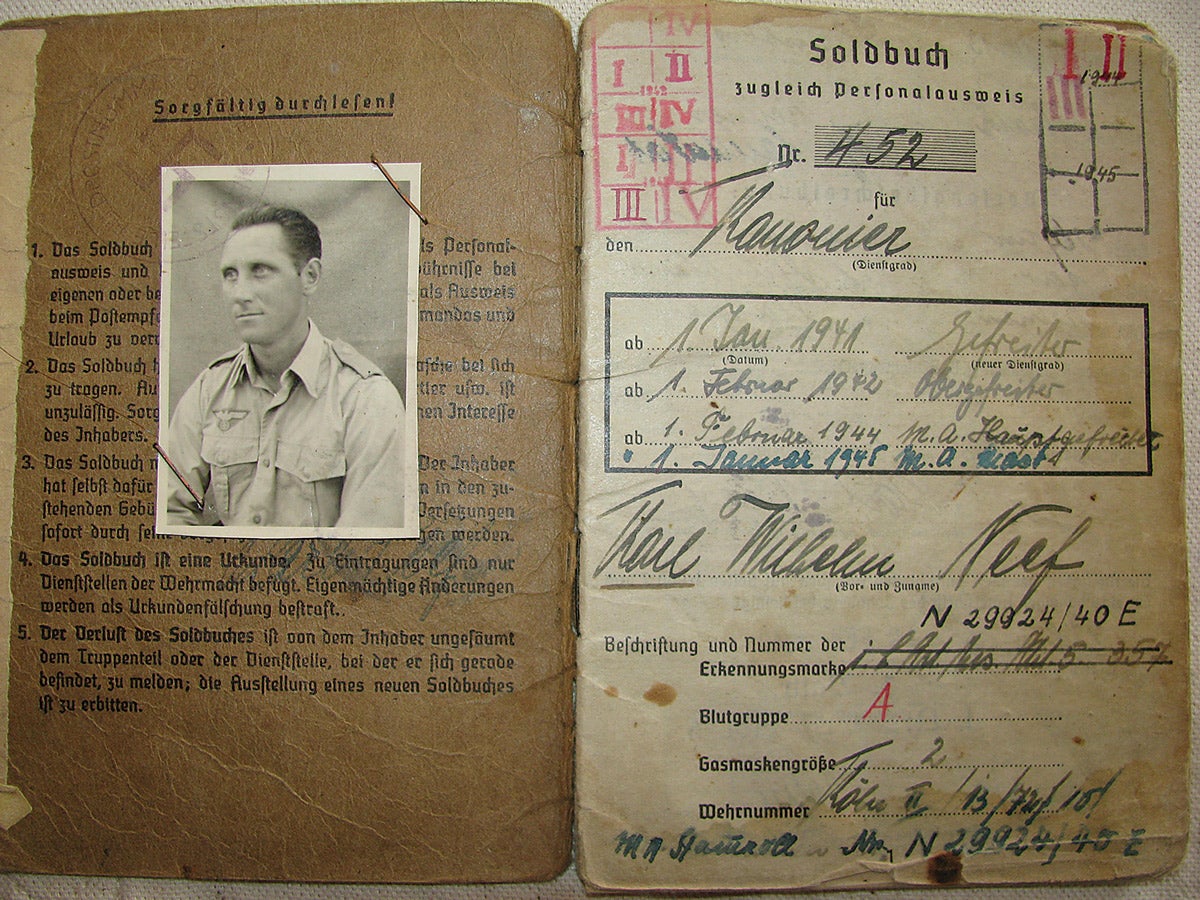 Sorgfältig durchlesen!
1. Das Soldbuch ls Personal-
ausweis und ührnisse bei
eigenen oder be als Ausweis
beim Postempfa mandos und
Urlaub zu ver
2. Das Soldbuch asche bei sich
zu tragen. Au ler usw. ist
unzulässig. Sorg nen Interesse
des Inhabers.
3. Das Soldbuch Der Inhaber
hat selbst dafür n in den zu-
stehenden Gebü Versetzungen
sofort durch en werden.
4. Das Soldbuch ist eine Urkunde. Zu Eintragungen sind nur
Dienststellen der Wehrmacht befugt. Eigenmächtige Änderungen
werden als Urkundenfälschung bestraft.
5. Der Verlust des Soldbuches ist von dem Inhaber ungesäumt
dem Truppenteil oder der Dienststelle, bei der er sich gerade
befindet, zu melden; die Ausstellung eines neuen Soldbuches
ist zu erbitten.
IV
I II
1942
III IV
I II
III IV
I II
1944
III
1945
Soldbuch
zugleich Personalausweis
Nr. 452
für
den Kanonier
(Dienstgrad)
ab 1. Jan. 1941 Gefreiter
(Datum) (neuer Dienstgrad)
ab 1. Februar 1942 Obergefreiter
ab 1. Februar 1944 M.A. Hauptgefreiter
" 1. Januar 1945 M.A. Maat
Karl Wilhelm Neef
(Vor- und Zuname)
N 29924/40 E
Beschriftung und Nummer der
Erkennungsmarke 357
Blutgruppe A
Gasmaskengröße 2
Wehrnummer Köln II /13/72/10/
MA Stammroll Nr. N 29924/40 E